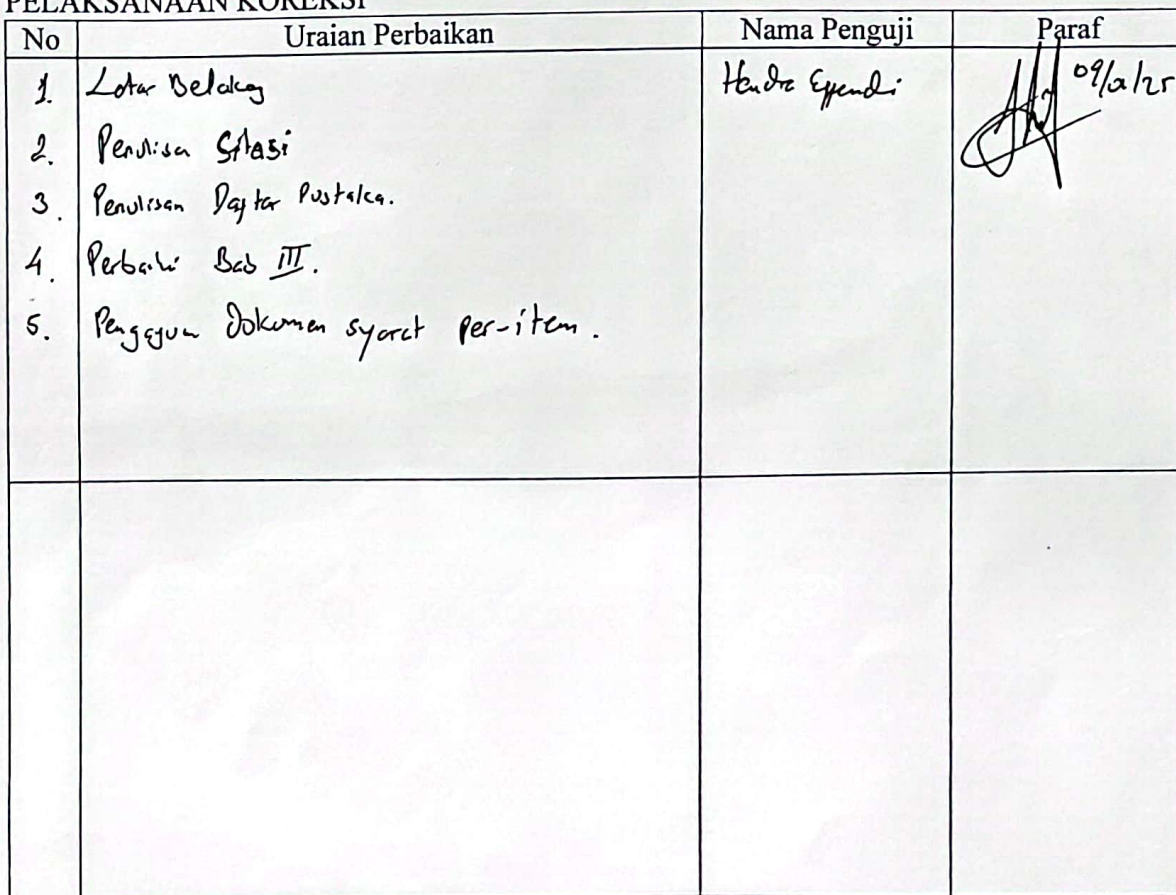 PELAKSANAAN KOREKSI
No Uraian Perbaikan Nama Penguji Paraf
1. Latar Belakag Hendra Effendi
2. Penulisa Sitasi
3. Penulisan Daftar Pustaka.
4. Perbaiki Bab III.
5. Dokumen syarat per-item.